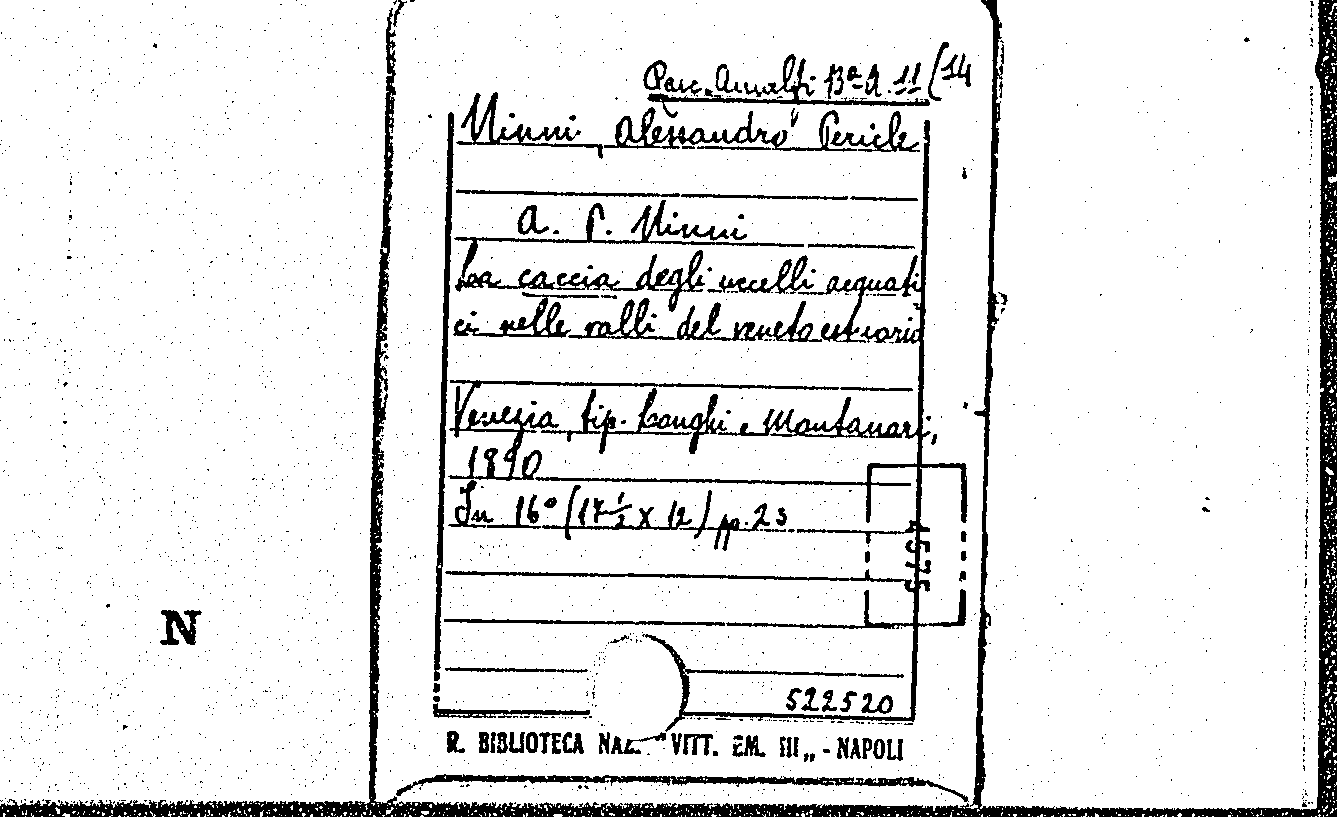 Parc. Amalfi Bª A. 11 (14
Ninni, Alessandro Pericle
A. P. Ninni
La caccia degli uccelli acquati
ci nelle valli del veneto estuario
Venezia, tip. Longhi e Montanari,
1890
In 16° (17 1/2 x 12) pp. 23
4575
N
522520
R. BIBLIOTECA NAZ. "VITT. EM. III„ - NAPOLI